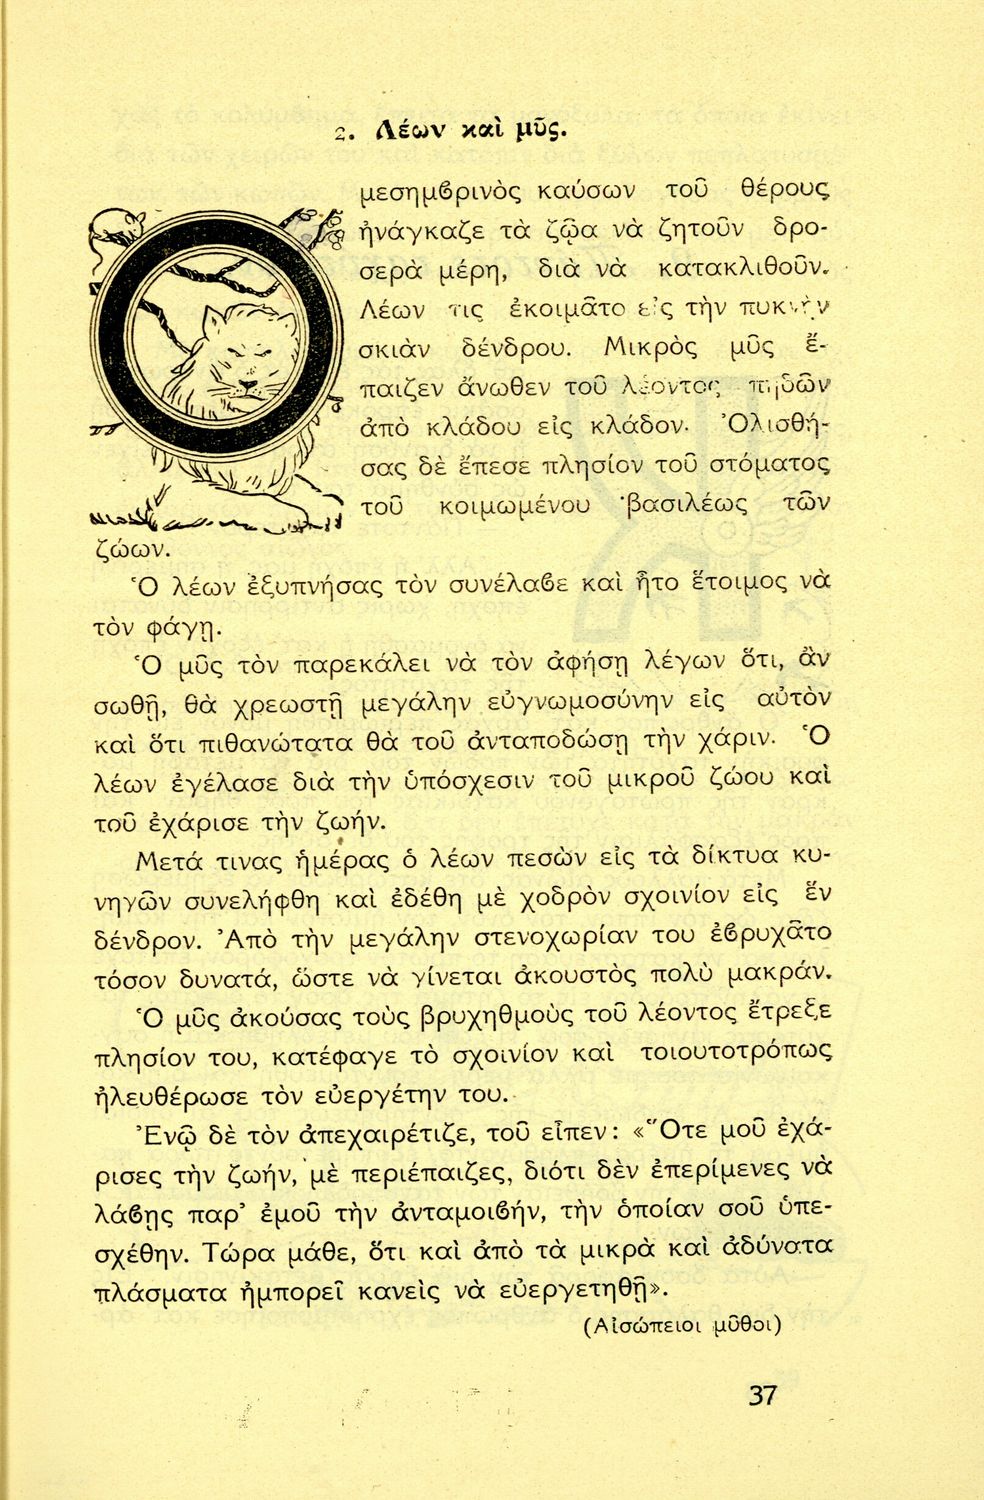 2. Λέων καὶ μῦς.
Ὁ μεσημβρινὸς καύσων τοῦ θέρους
ἠνάγκαζε τὰ ζῷα νὰ ζητοῦν δρο-
σερὰ μέρη, διὰ νὰ κατακλιθοῦν.
Λέων τις ἐκοιμᾶτο εἰς τὴν πυκνὴν
σκιὰν δένδρου. Μικρὸς μῦς ἔ-
παιζεν ἄνωθεν τοῦ λέοντος πηδῶν
ἀπὸ κλάδου εἰς κλάδον. Ὀλισθή-
σας δὲ ἔπεσε πλησίον τοῦ στόματος
τοῦ κοιμωμένου βασιλέως τῶν
ζώων.
Ὁ λέων ἐξυπνήσας τὸν συνέλαβε καὶ ἦτο ἕτοιμος νὰ
τὸν φάγῃ.
Ὁ μῦς τὸν παρεκάλει νὰ τὸν ἀφήσῃ λέγων ὅτι, ἂν
σωθῇ, θὰ χρεωστῇ μεγάλην εὐγνωμοσύνην εἰς αὐτὸν
καὶ ὅτι πιθανώτατα θὰ τοῦ ἀνταποδώσῃ τὴν χάριν. Ὁ
λέων ἐγέλασε διὰ τὴν ὑπόσχεσιν τοῦ μικροῦ ζώου καὶ
τοῦ ἐχάρισε τὴν ζωήν.
Μετά τινας ἡμέρας ὁ λέων πεσὼν εἰς τὰ δίκτυα κυ-
νηγῶν συνελήφθη καὶ ἐδέθη μὲ χοδρὸν σχοινίον εἰς ἕν
δένδρον. Ἀπὸ τὴν μεγάλην στενοχωρίαν του ἐβρυχᾶτο
τόσον δυνατά, ὥστε νὰ γίνεται ἀκουστὸς πολὺ μακράν.
Ὁ μῦς ἀκούσας τοὺς βρυχηθμοὺς τοῦ λέοντος ἔτρεξε
πλησίον του, κατέφαγε τὸ σχοινίον καὶ τοιουτοτρόπως
ἠλευθέρωσε τὸν εὐεργέτην του.
Ἐνῷ δὲ τὸν ἀπεχαιρέτιζε, τοῦ εἶπεν: «Ὅτε μοῦ ἐχά-
ρισες τὴν ζωήν, μὲ περιέπαιζες, διότι δὲν ἐπερίμενες νὰ
λάβῃς παρ’ ἐμοῦ τὴν ἀνταμοιβήν, τὴν ὁποίαν σοῦ ὑπε-
σχέθην. Τώρα μάθε, ὅτι καὶ ἀπὸ τὰ μικρὰ καὶ ἀδύνατα
πλάσματα ἠμπορεῖ κανεὶς νὰ εὐεργετηθῇ».
(Αἰσώπειοι μῦθοι)
37